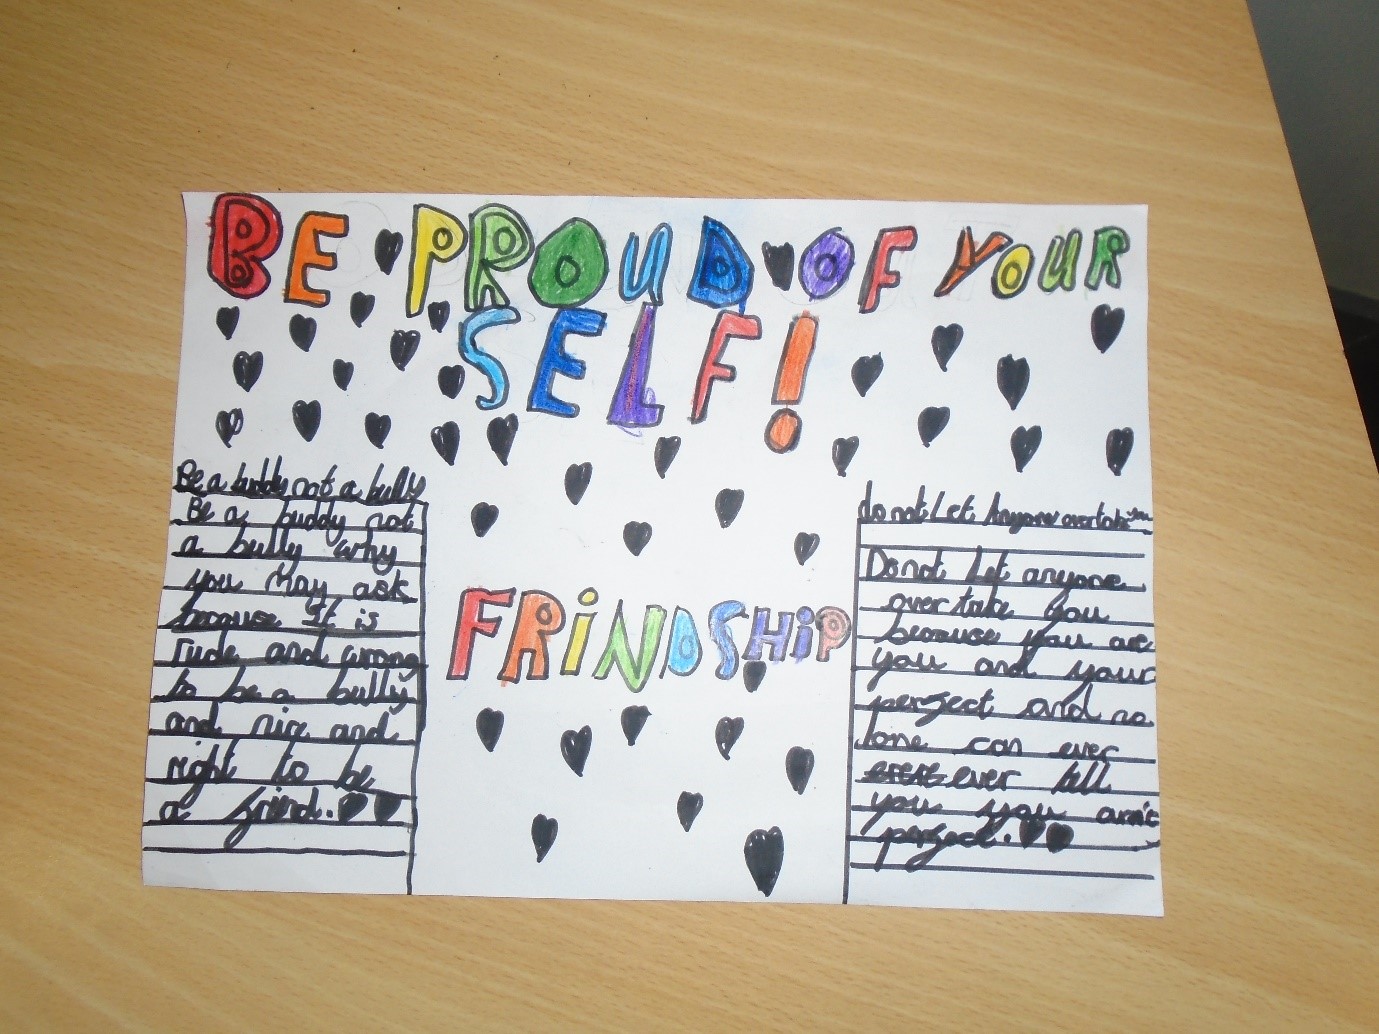 BE PROUD OF YOUR
SELF!
Be a buddy not a bully
Be a buddy not
a bully why
you may ask
because It is
rude and wrong
to be a bully
and nice and
right to be
a frind.
FRiNDSHiP
do not Let Anyone overtake you
Do not let anyone
over take you
because you are
you and your
perfect and no
one can ever
ever tell
you you arn't
perfect.